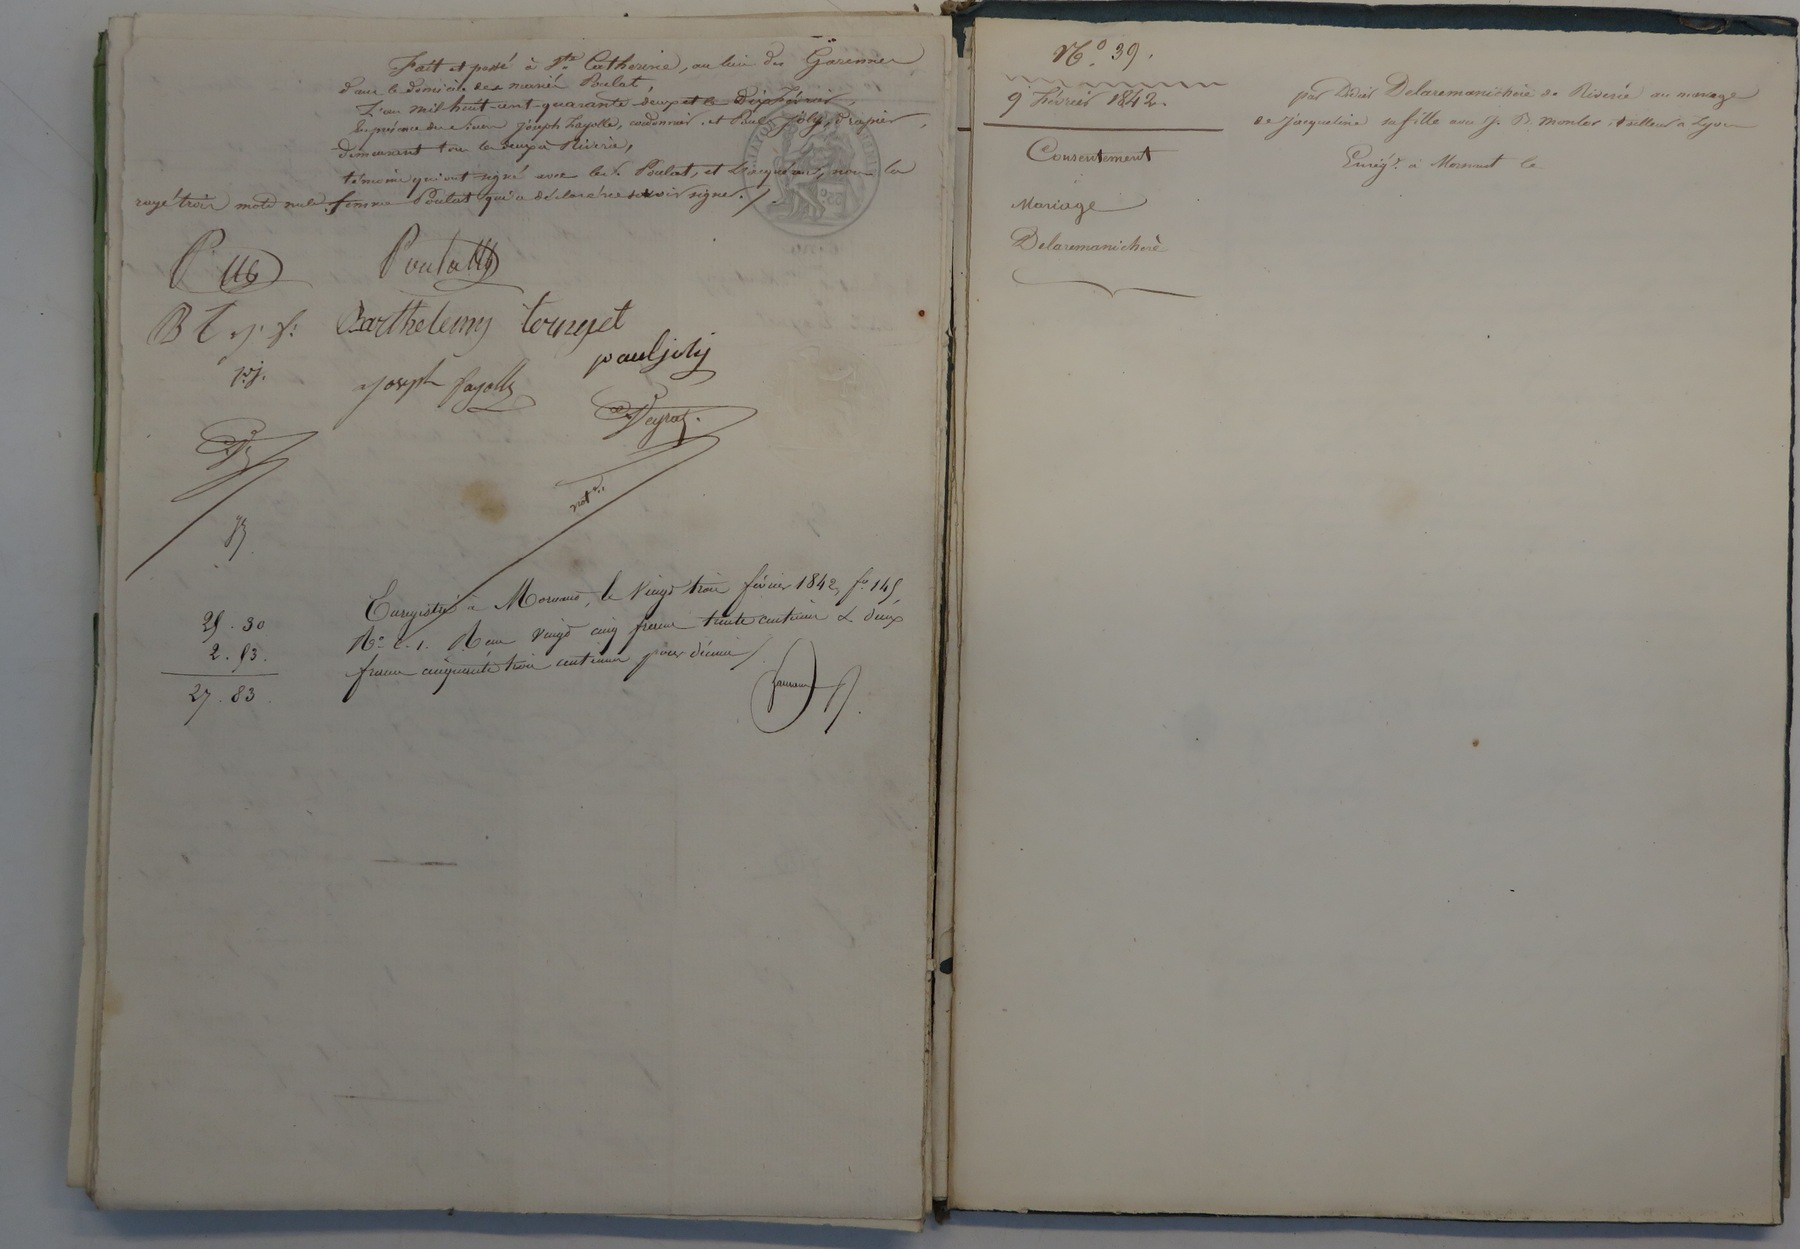 Fait et passé à Ste Catherine, au lieu des Garennes
dans le domicile des mariés Poulat,
L'an mil huit cent quarante deux et le Dix février,
En présence des sieurs Joseph Fayolle, cordonnier, et Paul Joly, drapier,
demeurant tous les deux à Riverie,
témoins qui ont signé avec led. Poulat, et l'acquéreur, non la
rayé trois mots nuls femme Poulat qui a déclaré ne savoir signer. /.
P
Poulat
B t
Barthelemy
paul joly
p.j.
joseph fayolle
Peyrat
notre
Enregistré à Mornant, le vingt trois février 1842, fo 145
25 . 30
No c. 1. Reçu vingt cinq francs trente centimes & deux
2 . 53 .
francs cinquante trois centimes pour décime /.
27 . 83 .
No. 39.
9 Février 1842.
par Didier Delaremanichère de Riverie au mariage
de Jacqueline sa fille avec J. Bte tailleur à Lyon
Consentement
Enregt. à Mornant le
Mariage
Delaremanichère